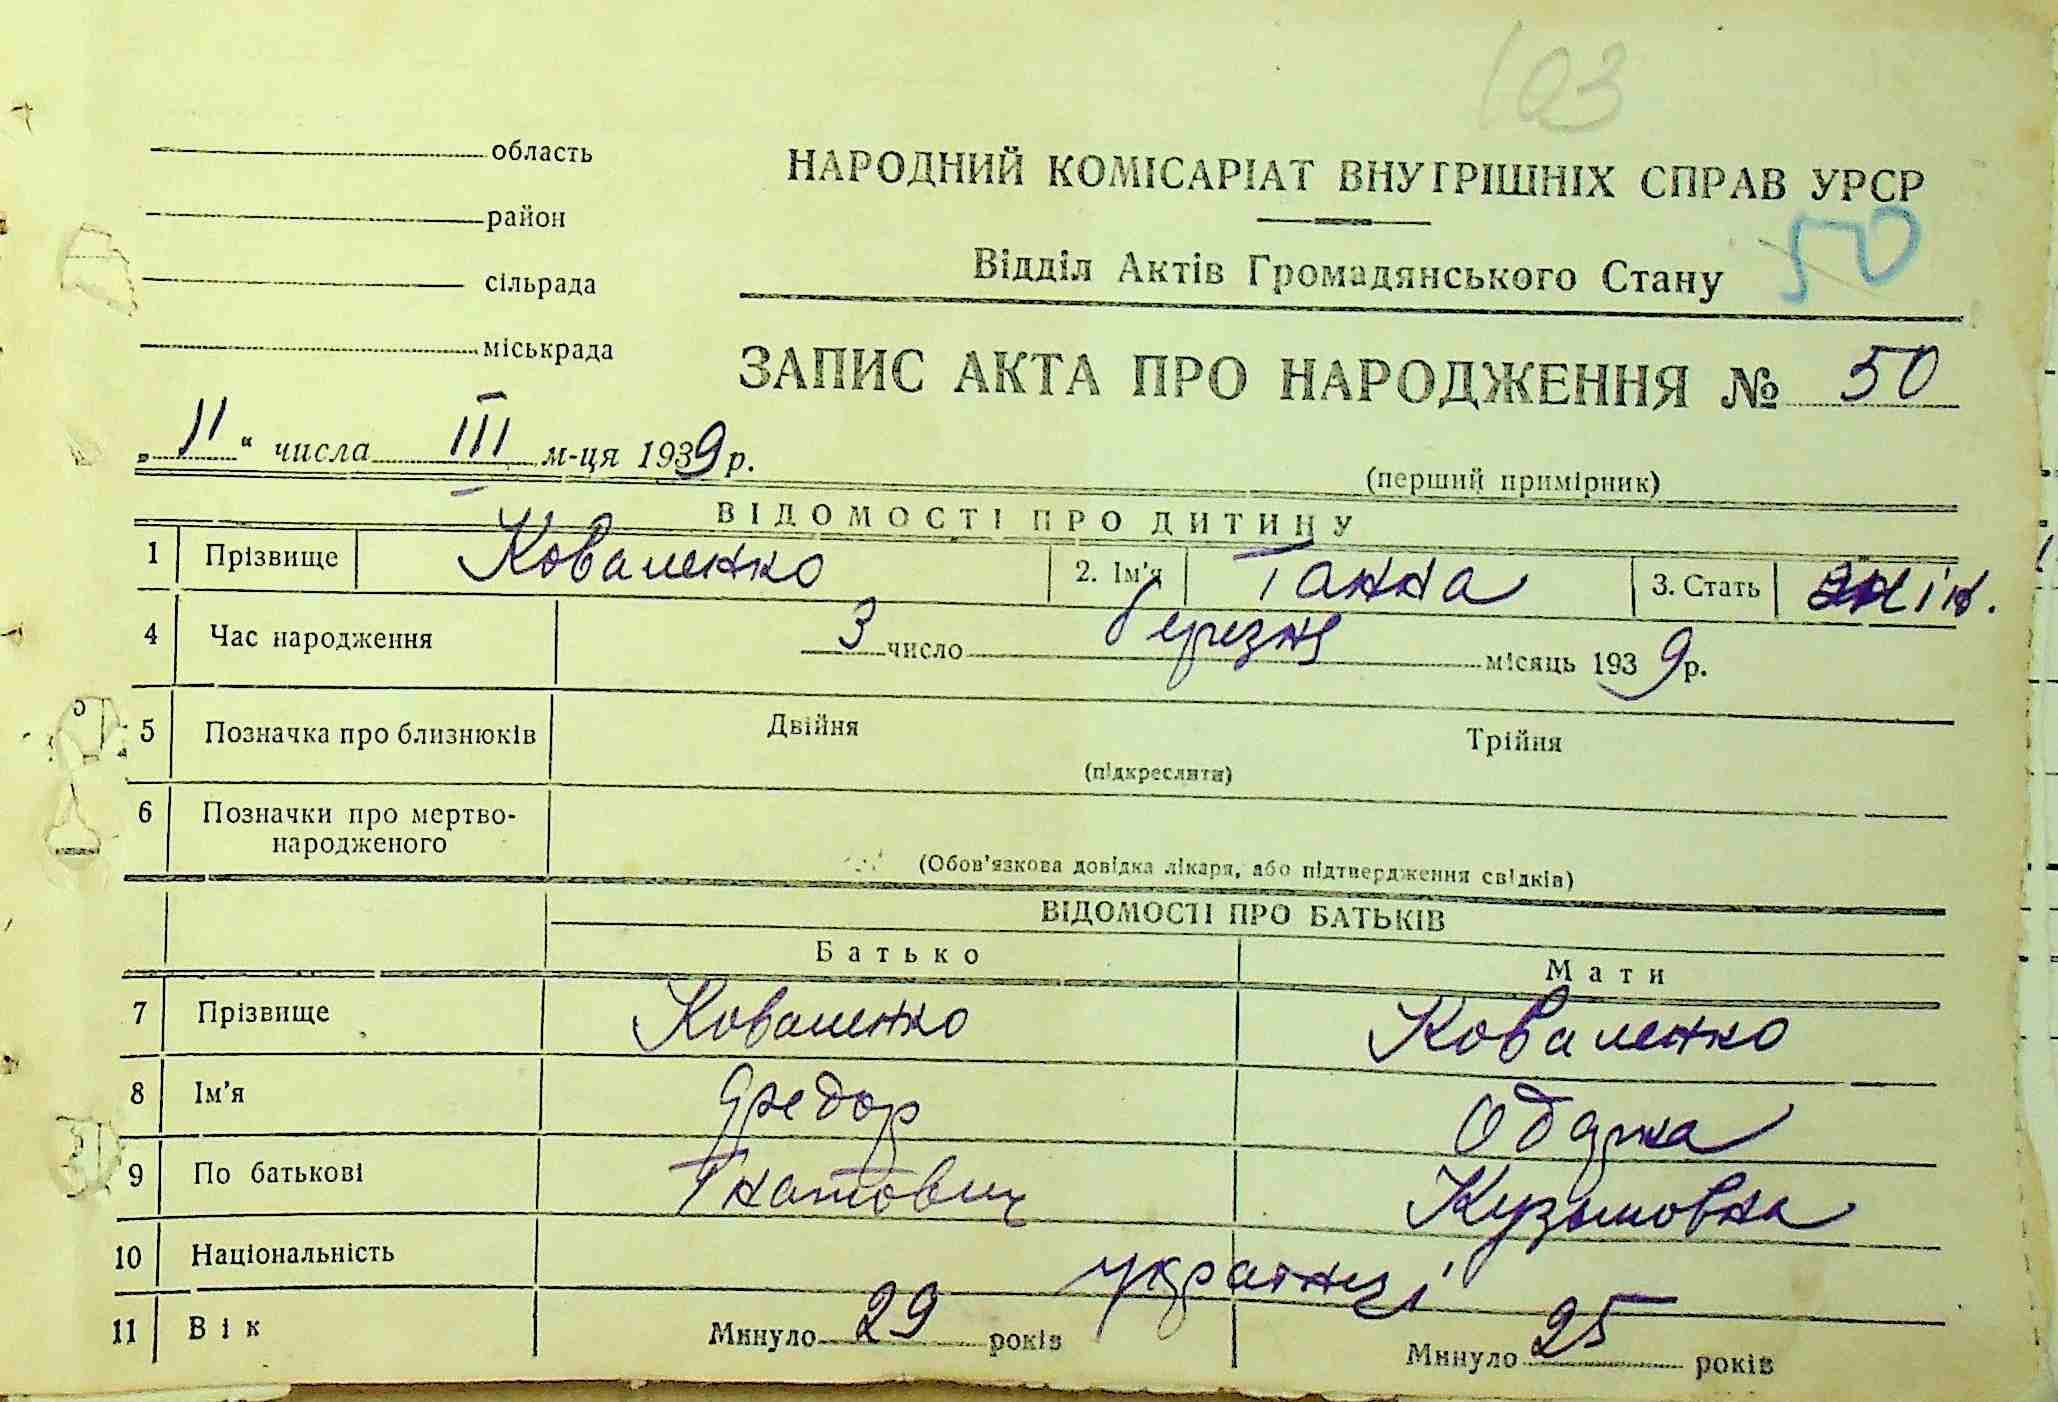 103
область
НАРОДНИЙ КОМІСАРІАТ ВНУТРІШНІХ СПРАВ УРСР
район
50
Відділ Актів Громадянського Стану
сільрада
міськрада
ЗАПИС АКТА ПРО НАРОДЖЕННЯ № 50
„11“ числа III м-ця 1939 р.
(перший примірник)
ВІДОМОСТІ ПРО ДИТИНУ
1 Прізвище Коваленко 2. Ім'я Ганна 3. Стать жін.
4 Час народження 3 число березня місяць 1939 р.
5 Позначка про близнюків Двійня Трійня
(підкреслити)
6 Позначки про мертво-
народженого
(Обов'язкова довідка лікаря, або підтвердження свідків)
ВІДОМОСТІ ПРО БАТЬКІВ
Батько Мати
7 Прізвище Коваленко Коваленко
8 Ім'я Федор
9 По батькові Гнатович Кузьмовна
10 Національність українці
11 Вік Минуло 29 років Минуло 25 років